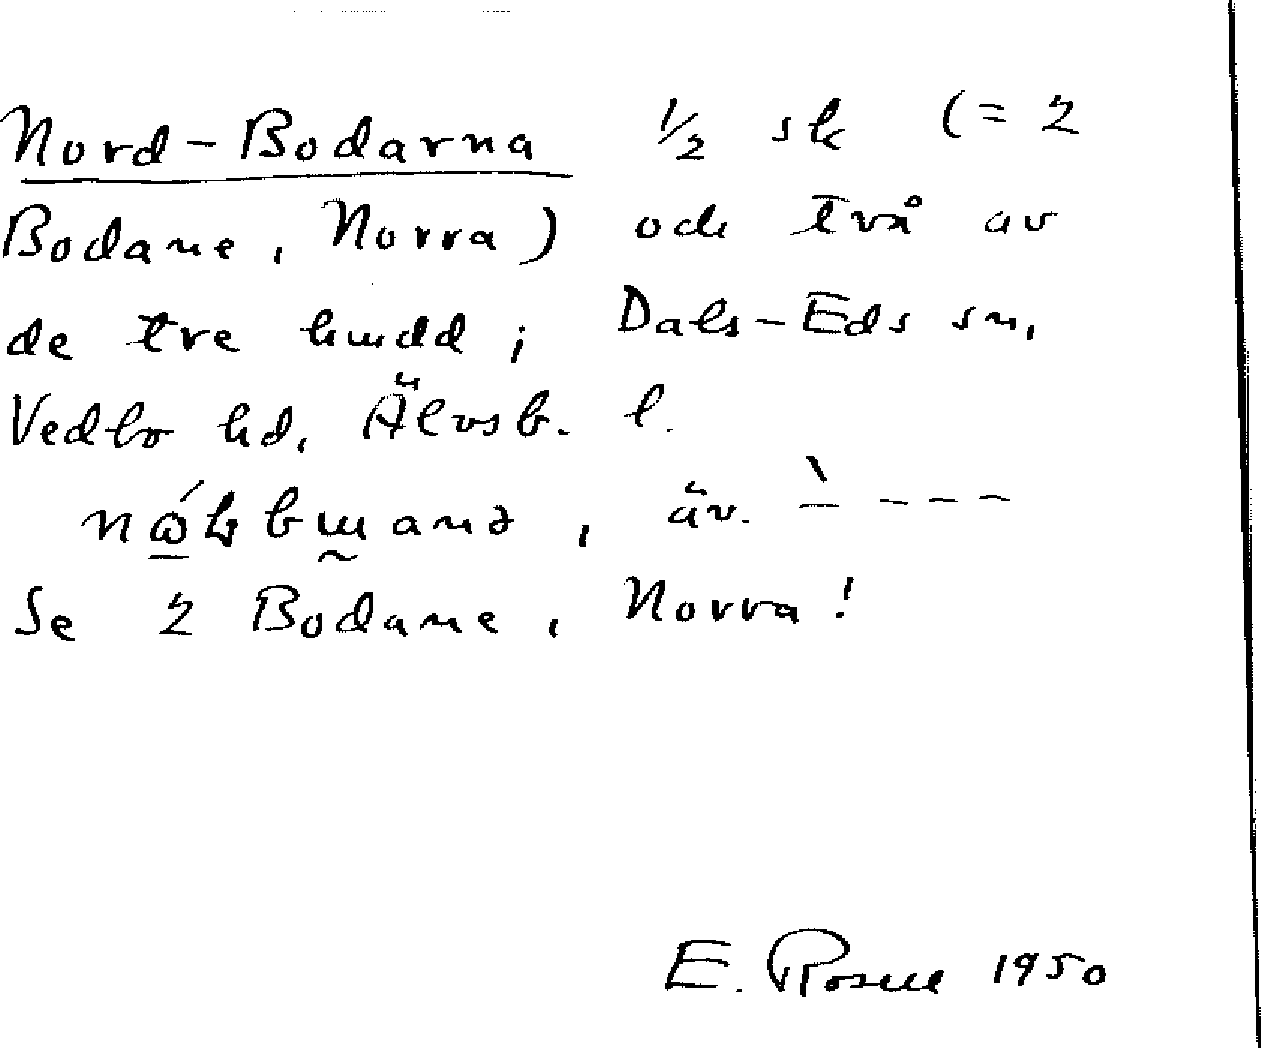 Nord-Bodarna 1/2 sk (= 2
Bodane, Norra) och två av
de tre hmdd i Dals-Eds sn,
Vedbo hd, Älvsb. l.
äv. ` - - -
Se 2 Bodane, Norra!
E. Rosell 1950